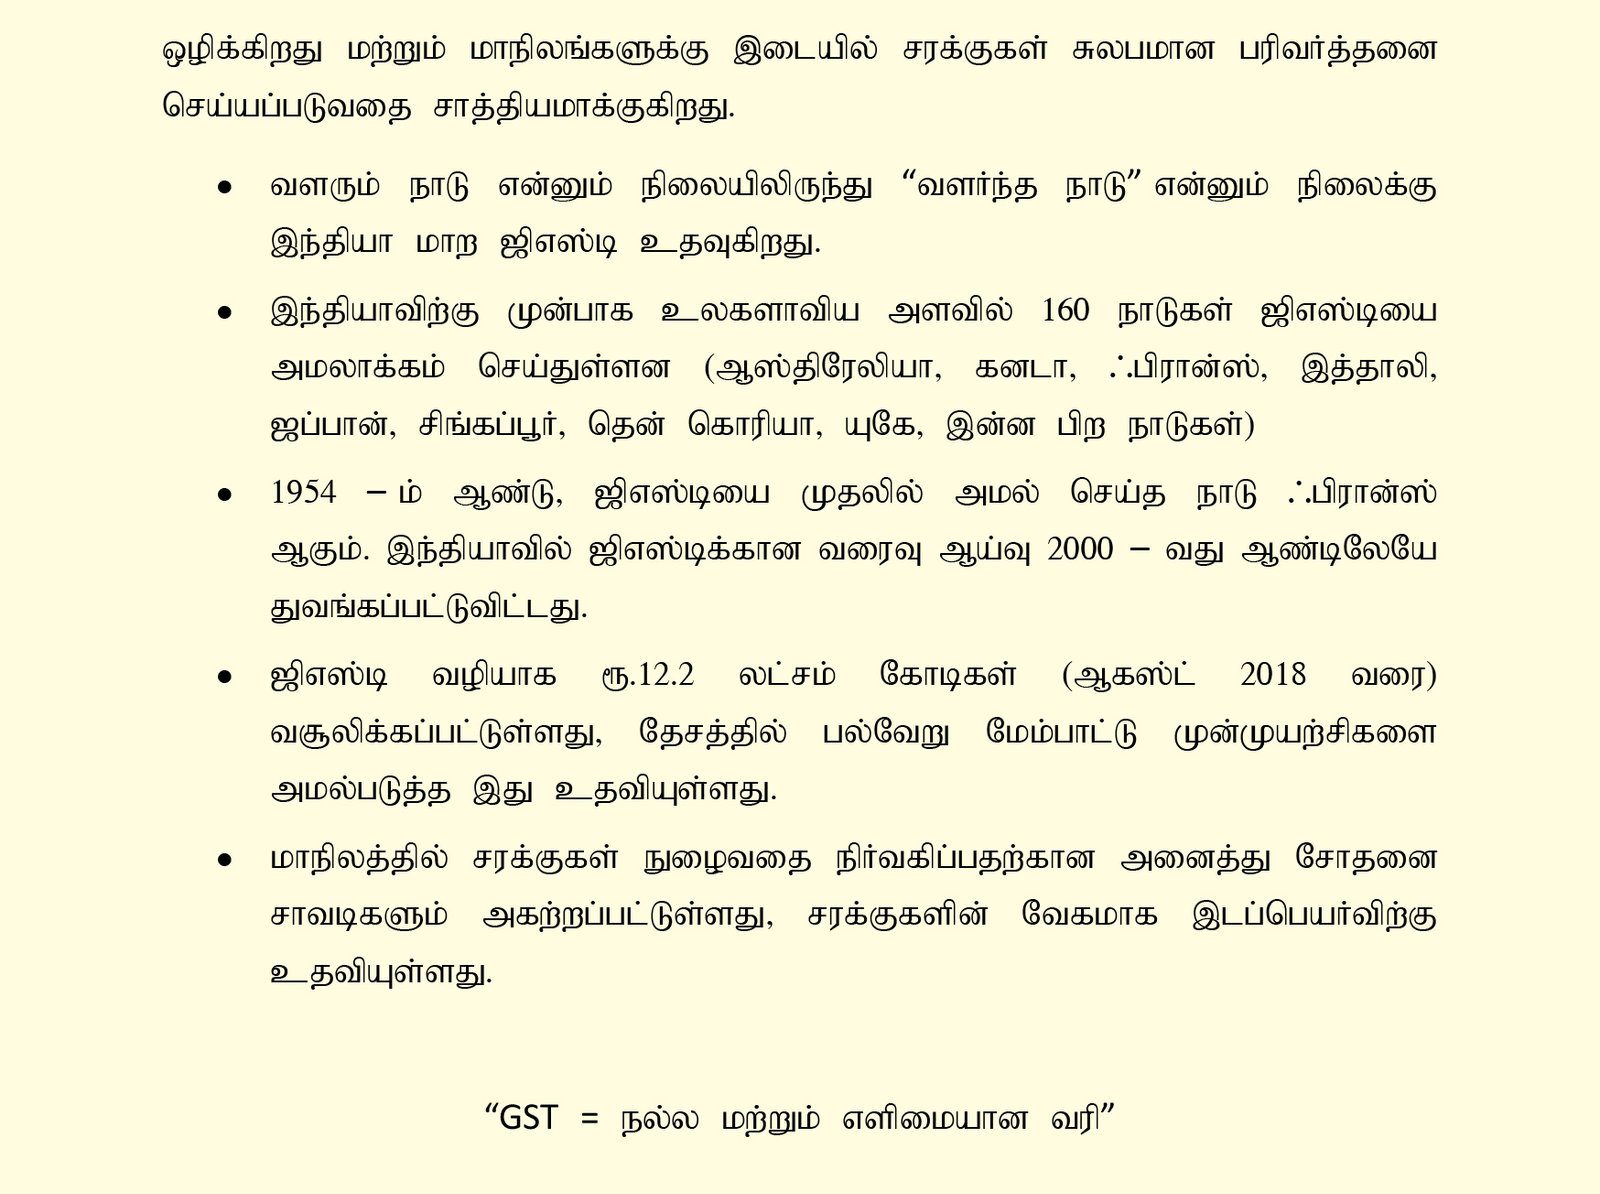 ஒழிக்கிறது மற்றும் மாநிலங்களுக்கு இடையில் சரக்குகள் சுலபமான பரிவர்த்தனை
செய்யப்படுவதை சாத்தியமாக்குகிறது.
• வளரும் நாடு என்னும் நிலையிலிருந்து “வளர்ந்த நாடு” என்னும் நிலைக்கு
இந்தியா மாற ஜிஎஸ்டி உதவுகிறது.
• இந்தியாவிற்கு முன்பாக உலகளாவிய அளவில் 160 நாடுகள் ஜிஎஸ்டியை
அமலாக்கம் செய்துள்ளன (ஆஸ்திரேலியா, கனடா, ஃபிரான்ஸ், இத்தாலி,
ஜப்பான், சிங்கப்பூர், தென் கொரியா, யுகே, இன்ன பிற நாடுகள்)
• 1954 – ம் ஆண்டு, ஜிஎஸ்டியை முதலில் அமல் செய்த நாடு ஃபிரான்ஸ்
ஆகும். இந்தியாவில் ஜிஎஸ்டிக்கான வரைவு ஆய்வு 2000 – வது ஆண்டிலேயே
துவங்கப்பட்டுவிட்டது.
• ஜிஎஸ்டி வழியாக ரூ.12.2 லட்சம் கோடிகள் (ஆகஸ்ட் 2018 வரை)
வசூலிக்கப்பட்டுள்ளது, தேசத்தில் பல்வேறு மேம்பாட்டு முன்முயற்சிகளை
அமல்படுத்த இது உதவியுள்ளது.
• மாநிலத்தில் சரக்குகள் நுழைவதை நிர்வகிப்பதற்கான அனைத்து சோதனை
சாவடிகளும் அகற்றப்பட்டுள்ளது, சரக்குகளின் வேகமாக இடப்பெயர்விற்கு
உதவியுள்ளது.
“GST = நல்ல மற்றும் எளிமையான வரி”